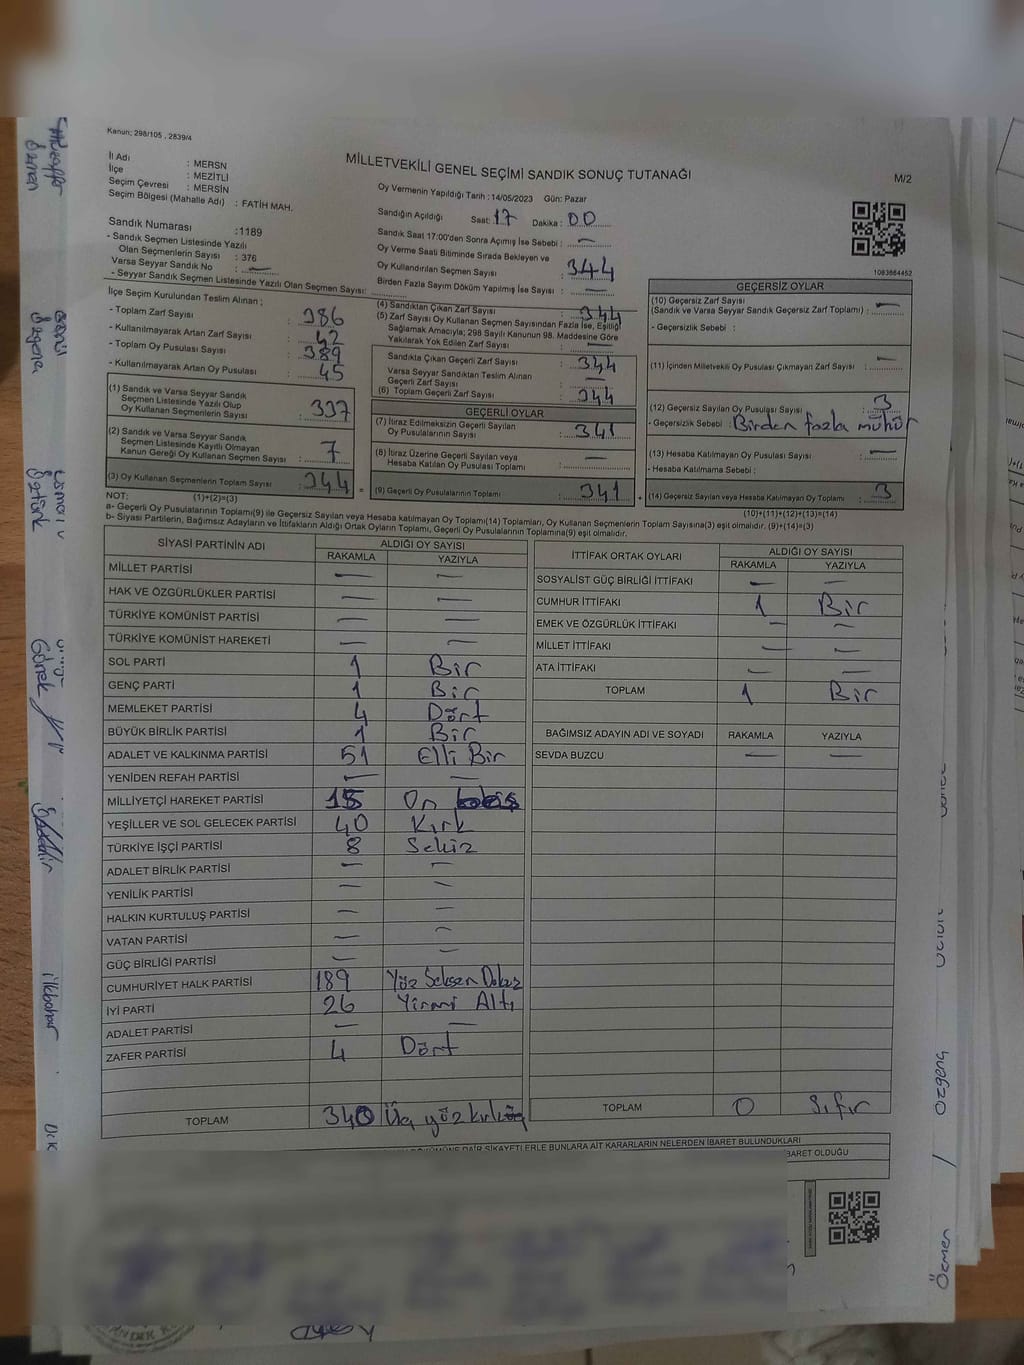 Kanun; 298/105 , 2839/4
MİLLETVEKİLİ GENEL SEÇİMİ SANDIK SONUÇ TUTANAĞI
M/2
İl Adı : MERSN
İlçe : MEZİTLİ
Seçim Çevresi : MERSİN
Seçim Bölgesi (Mahalle Adı) : FATİH MAH.
Sandık Numarası :1189
- Sandık Seçmen Listesinde Yazılı
Olan Seçmenlerin Sayısı : 376
Varsa Seyyar Sandık No : —
- Seyyar Sandık Seçmen Listesinde Yazılı Olan Seçmen Sayısı:
Oy Vermenin Yapıldığı Tarih : 14/05/2023 Gün: Pazar
Sandığın Açıldığı Saat: 17 Dakika : 00
Sandık Saat 17:00'den Sonra Açımış İse Sebebi : —
Oy Verme Saati Bitiminde Sırada Bekleyen ve
Oy Kullandırılan Seçmen Sayısı : 344
Birden Fazla Sayım Döküm Yapılmış İse Sayısı : —
1083864452
İlçe Seçim Kurulundan Teslim Alınan ;
- Toplam Zarf Sayısı : 386
- Kullanılmayarak Artan Zarf Sayısı : 42
- Toplam Oy Pusulası Sayısı : 389
- Kullanılmayarak Artan Oy Pusulası : 45
(1) Sandık ve Varsa Seyyar Sandık
Seçmen Listesinde Yazılı Olup
Oy Kullanan Seçmenlerin Sayısı : 337
(2) Sandık ve Varsa Seyyar Sandık
Seçmen Listesinde Kayıtlı Olmayan
Kanun Gereği Oy Kullanan Seçmen Sayısı : 7
(3) Oy Kullanan Seçmenlerin Toplam Sayısı : 344 =
(4) Sandıktan Çıkan Zarf Sayısı : 344
(5) Zarf Sayısı Oy Kullanan Seçmen Sayısından Fazla İse, Eşitliği
Sağlamak Amacıyla; 298 Sayılı Kanunun 98. Maddesine Göre
Yakılarak Yok Edilen Zarf Sayısı : —
Sandıkla Çıkan Geçerli Zarf Sayısı : 344
Varsa Seyyar Sandıktan Teslim Alınan
Geçerli Zarf Sayısı : —
(6) Toplam Geçerli Zarf Sayısı : 344
GEÇERLİ OYLAR
(7) İtiraz Edilmeksizin Geçerli Sayılan
Oy Pusulalarının Sayısı : 341
(8) İtiraz Üzerine Geçerli Sayılan veya
Hesaba Katılan Oy Pusulası Toplamı : —
(9) Geçerli Oy Pusulalarının Toplamı : 341 +
GEÇERSİZ OYLAR
(10) Geçersiz Zarf Sayısı
(Sandık ve Varsa Seyyar Sandık Geçersiz Zarf Toplamı) : —
- Geçersizlik Sebebi :
(11) İçinden Milletvekili Oy Pusulası Çıkmayan Zarf Sayısı : —
(12) Geçersiz Sayılan Oy Pusulası Sayısı : 3
- Geçersizlik Sebebi : Birden fazla mühür
(13) Hesaba Katılmayan Oy Pusulası Sayısı : —
- Hesaba Katılmama Sebebi :
(14) Geçersiz Sayılan veya Hesaba Katılmayan Oy Toplamı : 3
NOT; (1)+(2)=(3)
(10)+(11)+(12)+(13)=(14)
a- Geçerli Oy Pusulalarının Toplamı(9) ile Geçersiz Sayılan veya Hesaba katılmayan Oy Toplamı(14) Toplamları, Oy Kullanan Seçmenlerin Toplam Sayısına(3) eşit olmalıdır. (9)+(14)=(3)
b- Siyasi Partilerin, Bağımsız Adayların ve İttifakların Aldığı Ortak Oyların Toplamı, Geçerli Oy Pusulalarının Toplamına(9) eşit olmalıdır.
SİYASİ PARTİNİN ADI ALDIĞI OY SAYISI
RAKAMLA YAZIYLA
MİLLET PARTİSİ — —
HAK VE ÖZGÜRLÜKLER PARTİSİ — —
TÜRKİYE KOMÜNİST PARTİSİ — —
TÜRKİYE KOMÜNİST HAREKETİ — —
SOL PARTİ 1 Bir
GENÇ PARTİ 1 Bir
MEMLEKET PARTİSİ 4 Dört
BÜYÜK BİRLİK PARTİSİ 1 Bir
ADALET VE KALKINMA PARTİSİ 51 Elli Bir
YENİDEN REFAH PARTİSİ — —
MİLLİYETÇİ HAREKET PARTİSİ 15 On
YEŞİLLER VE SOL GELECEK PARTİSİ 40 Kırk
TÜRKİYE İŞÇİ PARTİSİ 8 Sekiz
ADALET BİRLİK PARTİSİ — —
YENİLİK PARTİSİ — —
HALKIN KURTULUŞ PARTİSİ — —
VATAN PARTİSİ — —
GÜÇ BİRLİĞİ PARTİSİ — —
CUMHURİYET HALK PARTİSİ 189 Yüz Seksen Dokuz
İYİ PARTİ 26 Yirmi Altı
ADALET PARTİSİ — —
ZAFER PARTİSİ 4 Dört
TOPLAM 340 Üç yüz kırk
İTTİFAK ORTAK OYLARI ALDIĞI OY SAYISI
RAKAMLA YAZIYLA
SOSYALİST GÜÇ BİRLİĞİ İTTİFAKI — —
CUMHUR İTTİFAKI 1 Bir
EMEK VE ÖZGÜRLÜK İTTİFAKI — —
MİLLET İTTİFAKI — —
ATA İTTİFAKI — —
TOPLAM 1 Bir
BAĞIMSIZ ADAYIN ADI VE SOYADI RAKAMLA YAZIYLA
SEVDA BUZCU — —
TOPLAM 0 Sıfır
DAİR ŞİKAYETLERLE BUNLARA AİT KARARLARIN NELERDEN İBARET BULUNDUKLARI
BARET OLDUĞU